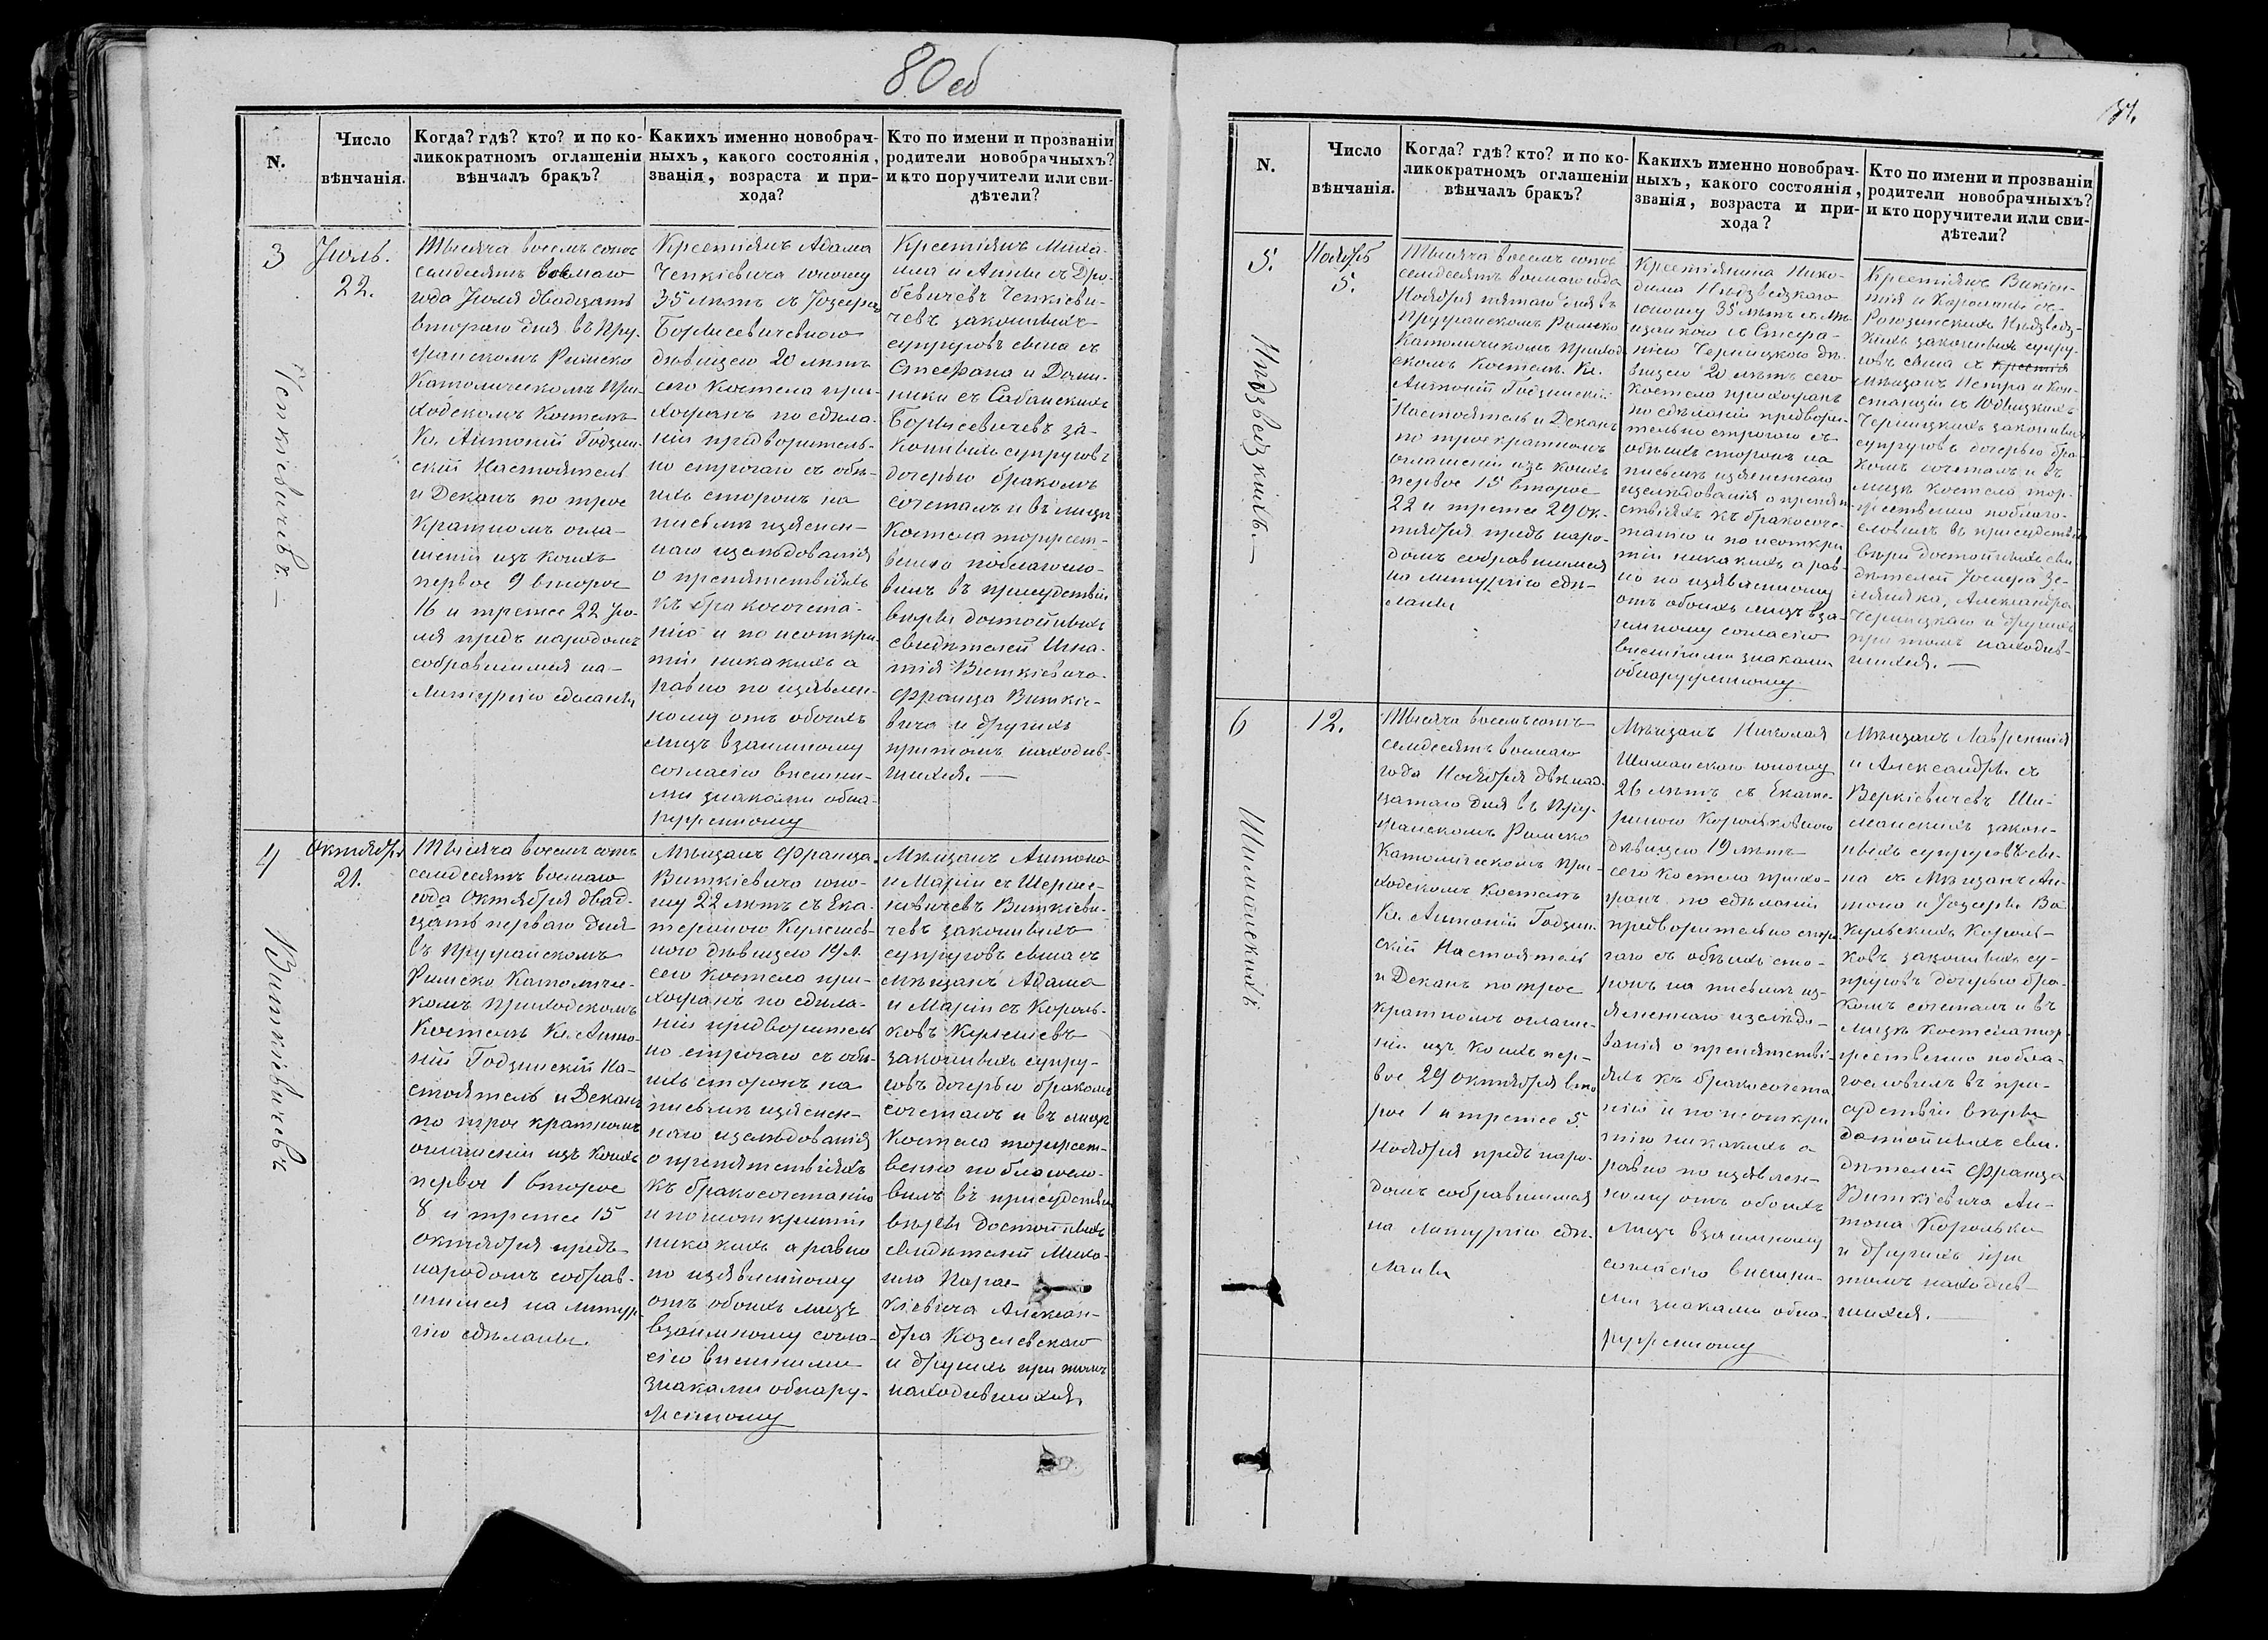 80 об
N.
Число
вѣнчанія.
Когда? гдѣ? кто? и по ко-
ликократномъ оглашеніи
вѣнчалъ бракъ?
Какихъ именно новобрач-
ныхъ, какого состоянія,
званія, возраста и при-
хода?
Кто по имени и прозваніи
родители новобрачныхъ?
и кто поручители или сви-
дѣтели?
3
Чепкіевичевъ. —
Іюль.
22.
Тысяча восемъ сотъ
семдесятъ восмаго
года Іюля двадцать
втораго дня въ Пру-
жанскомъ Римско
Католическомъ При-
ходскомъ Костелѣ
Кс. Антоній Годзин-
скій Настоятель
и Деканъ по трое
кратномъ огла-
шеніи изъ коихъ
первое 9 второе
16 и третее 22 Ію-
ля предъ народомъ
собравшимся на
Литургію сделаны
Крестіянъ Адама
Чепкіевича юношу
35 лѣтъ съ Юзефою
Борысевичевною
дѣвицею 20 лѣтъ
сего Костела при-
хожанъ по сдѣла-
ніи предворитель-
но строгаго съ обѣ-
ихъ сторонъ на
письмѣ изъяснен-
наго изслѣдованія
о препятствіяхъ
къ бракосочета-
нію и по неоткры-
тіи никакихъ а
равно по изъявлен-
ному отъ обоихъ
лицъ взаимному
согласію внешни-
ми знаками обна-
руженному
Крестіянъ Миха-
ила и Анны съ Дро-
бевичевъ Чепкіеви-
чевъ законныхъ
супруговъ сына съ
Стефана и Доми-
ники съ Сабанскихъ
Борысевичевъ за-
конныхъ супруговъ
дочерью бракомъ
сочеталъ и въ лицѣ
Костела торжест-
венно поблагосло-
вилъ въ присудствіи
вѣры достойныхъ
свидѣтелей Игна-
тія Виткіевича
Франца Виткіе-
вича и другихъ
притомъ находив-
шихся. —
4
Виткіевичевъ
Октября
21.
Тысяча восемъ сотъ
семдесятъ восмаго
года Октября двад-
цать перваго дня
въ Пружанскомъ
Римско Католичес-
комъ Приходскомъ
Костелѣ Кс. Анто-
ній Годзинскій На-
стоятель и Деканъ
по трое кратномъ
оглашеніи изъ коихъ
первое 1 второе
8 и третее 15
Октября предъ
народомъ собрав-
шимся на литур-
гію сдѣланы.
Мѣщанъ Франца
Виткіевича юно-
шу 22 лѣтъ съ Ека-
териною Кулешев-
ною дѣвицею 19 л.
сего Костела при-
хожанъ по сдѣла-
ніи предворитель
но строгаго съ обѣ-
ихъ сторонъ на
письмѣ изъяснен-
наго изслѣдованія
о препятствіяхъ
къ бракосочетанію
и по неоткрытіи
никакихъ а равно
по изъявленному
отъ обоихъ лицъ
взаимному согла-
сію внешними
знаками обнару-
женному
Мѣщанъ Антона
и Маріи съ
Виткіеви-
чевъ законныхъ
супруговъ сына съ
мѣщанъ Адама
и Маріи съ Король-
ковъ Кулешевъ
законныхъ супру-
говъ дочерью бракомъ
сочеталъ и въ лицѣ
Костела торжест-
венно поблагосло-
вилъ въ присудствіи
вѣры достойныхъ
свидѣтелей Миха-
ила
Алексан-
дра Козелевскаго
и другихъ при томъ
находившихся.
N.
Число
вѣнчанія.
Когда? гдѣ? кто? и по ко-
ликократномъ оглашеніи
вѣнчалъ бракъ?
Какихъ именно новобрач-
ныхъ, какого состоянія,
званія, возраста и при-
хода?
Кто по имени и прозваніи
родители новобрачныхъ?
и кто поручители или сви-
дѣтели?
5.
Нѣдзвѣдзкихъ. —
Ноябрь
5.
Тысяча восемъ сотъ
семдесятъ восмаго года
Ноября пятаго дня въ
Пружанскомъ Римско
Католичкомъ Приход
скомъ Костелѣ. Кс.
Антоній Годзинскій
Настоятель и Деканъ
по троекратномъ
оглашеніи изъ коихъ
первое 15 второе
22 и третее 29 Ок-
тября предъ наро-
домъ собравшимся
на литургію сдѣ-
ланы
Крестіянина Нико-
дима Нѣдзвѣдзкаго
юношу 35 лѣтъ съ Мѣ-
щанкою Стефа-
ніею Черницкою дѣ-
вицею 20 лѣтъ сего
Костела прихожанъ
по сдѣланіи предвори-
тельно строгаго съ
обѣихъ сторонъ на
письмѣ изъясненнаго
изслѣдованія о препят
ствіяхъ къ бракосоче-
танію и по неоткры
тіи никакихъ а рав-
но по изъявленному
отъ обоихъ лицъ вза-
имному согласію
внешними знаками
обнаруженному
Крестіянъ Викен-
тія и Каролины съ
Нѣдзвѣдз-
кихъ законныхъ супру-
говъ сына съ крестія
мѣщанъ Петра и Кон-
станціи съ Юдыцкихъ
Черницкихъ законныхъ
супруговъ дочерью бра
комъ сочеталъ и въ
лицѣ Костела тор-
жественно поблаго-
словилъ въ присудствіи
вѣры достойныхъ сви
дѣтелей Іосифа Зе-
мляника, Александра
Черницкаго и другихъ
при томъ находив-
шихся. —
6
Шиманскихъ
12.
Тысяча восемъ сотъ
семдесятъ восмаго
года Ноября двѣнад
цатаго дня въ Пру-
жанскомъ Римско
Католическомъ При-
ходскомъ Костелѣ
Кс. Антоній Годзин
скій Настоятель
и Деканъ по трое
кратномъ оглаше-
ніи изъ коихъ пер-
вое 29 Октября вто
рое 1 и третее 5.
Ноября предъ наро-
домъ собравшимся
на Литургію сдѣ-
ланы
Мѣщанъ Николая
Шиманскаго юношу
26 лѣтъ съ Екате-
риною Корольковною
дѣвицею 19 лѣтъ
сего Костела прихо-
жанъ по сдѣланіи
предворительно стро
гаго съ обѣихъ сто-
ронъ на письмѣ из-
ъясненнаго изслѣдо-
ванія о препятстві-
яхъ къ бракосочета
нію и по неоткры
тію никакихъ а
равно по изъявлен-
ному отъ обоихъ
лицъ взаимному
согласію внешни-
ми знаками обна-
руженному
Мѣщанъ Лаврентія
и Александры съ
Веркіевичевъ Ши-
манскихъ закон-
ныхъ супруговъ сы-
на съ Мѣщанъ Ан-
тона и Юзефы
Король-
ковъ законныхъ су-
пруговъ дочерью бра-
комъ сочеталъ и въ
лицѣ Костела тор
жественно побла-
гословилъ въ при-
судствіи вѣры
достойныхъ сви-
дѣтелей Франца
Виткіевича Ан-
тона Королька
и другихъ при
томъ находив-
шихся. —